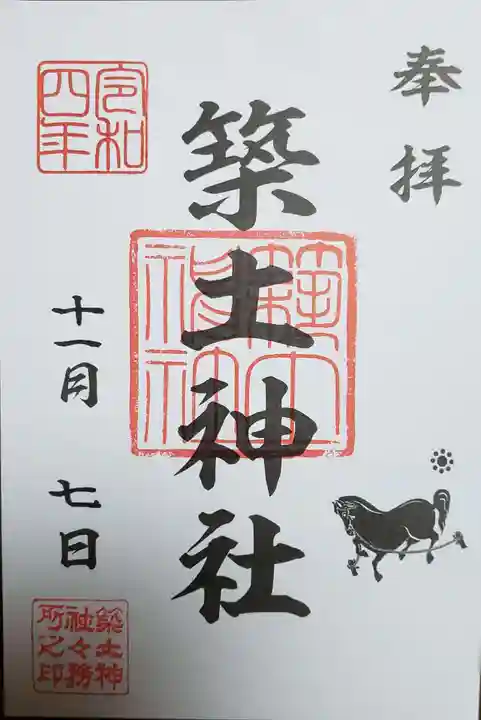 奉拝
築土神社
築土神社
令和四年
十一月 七日
築土神社々務所之印